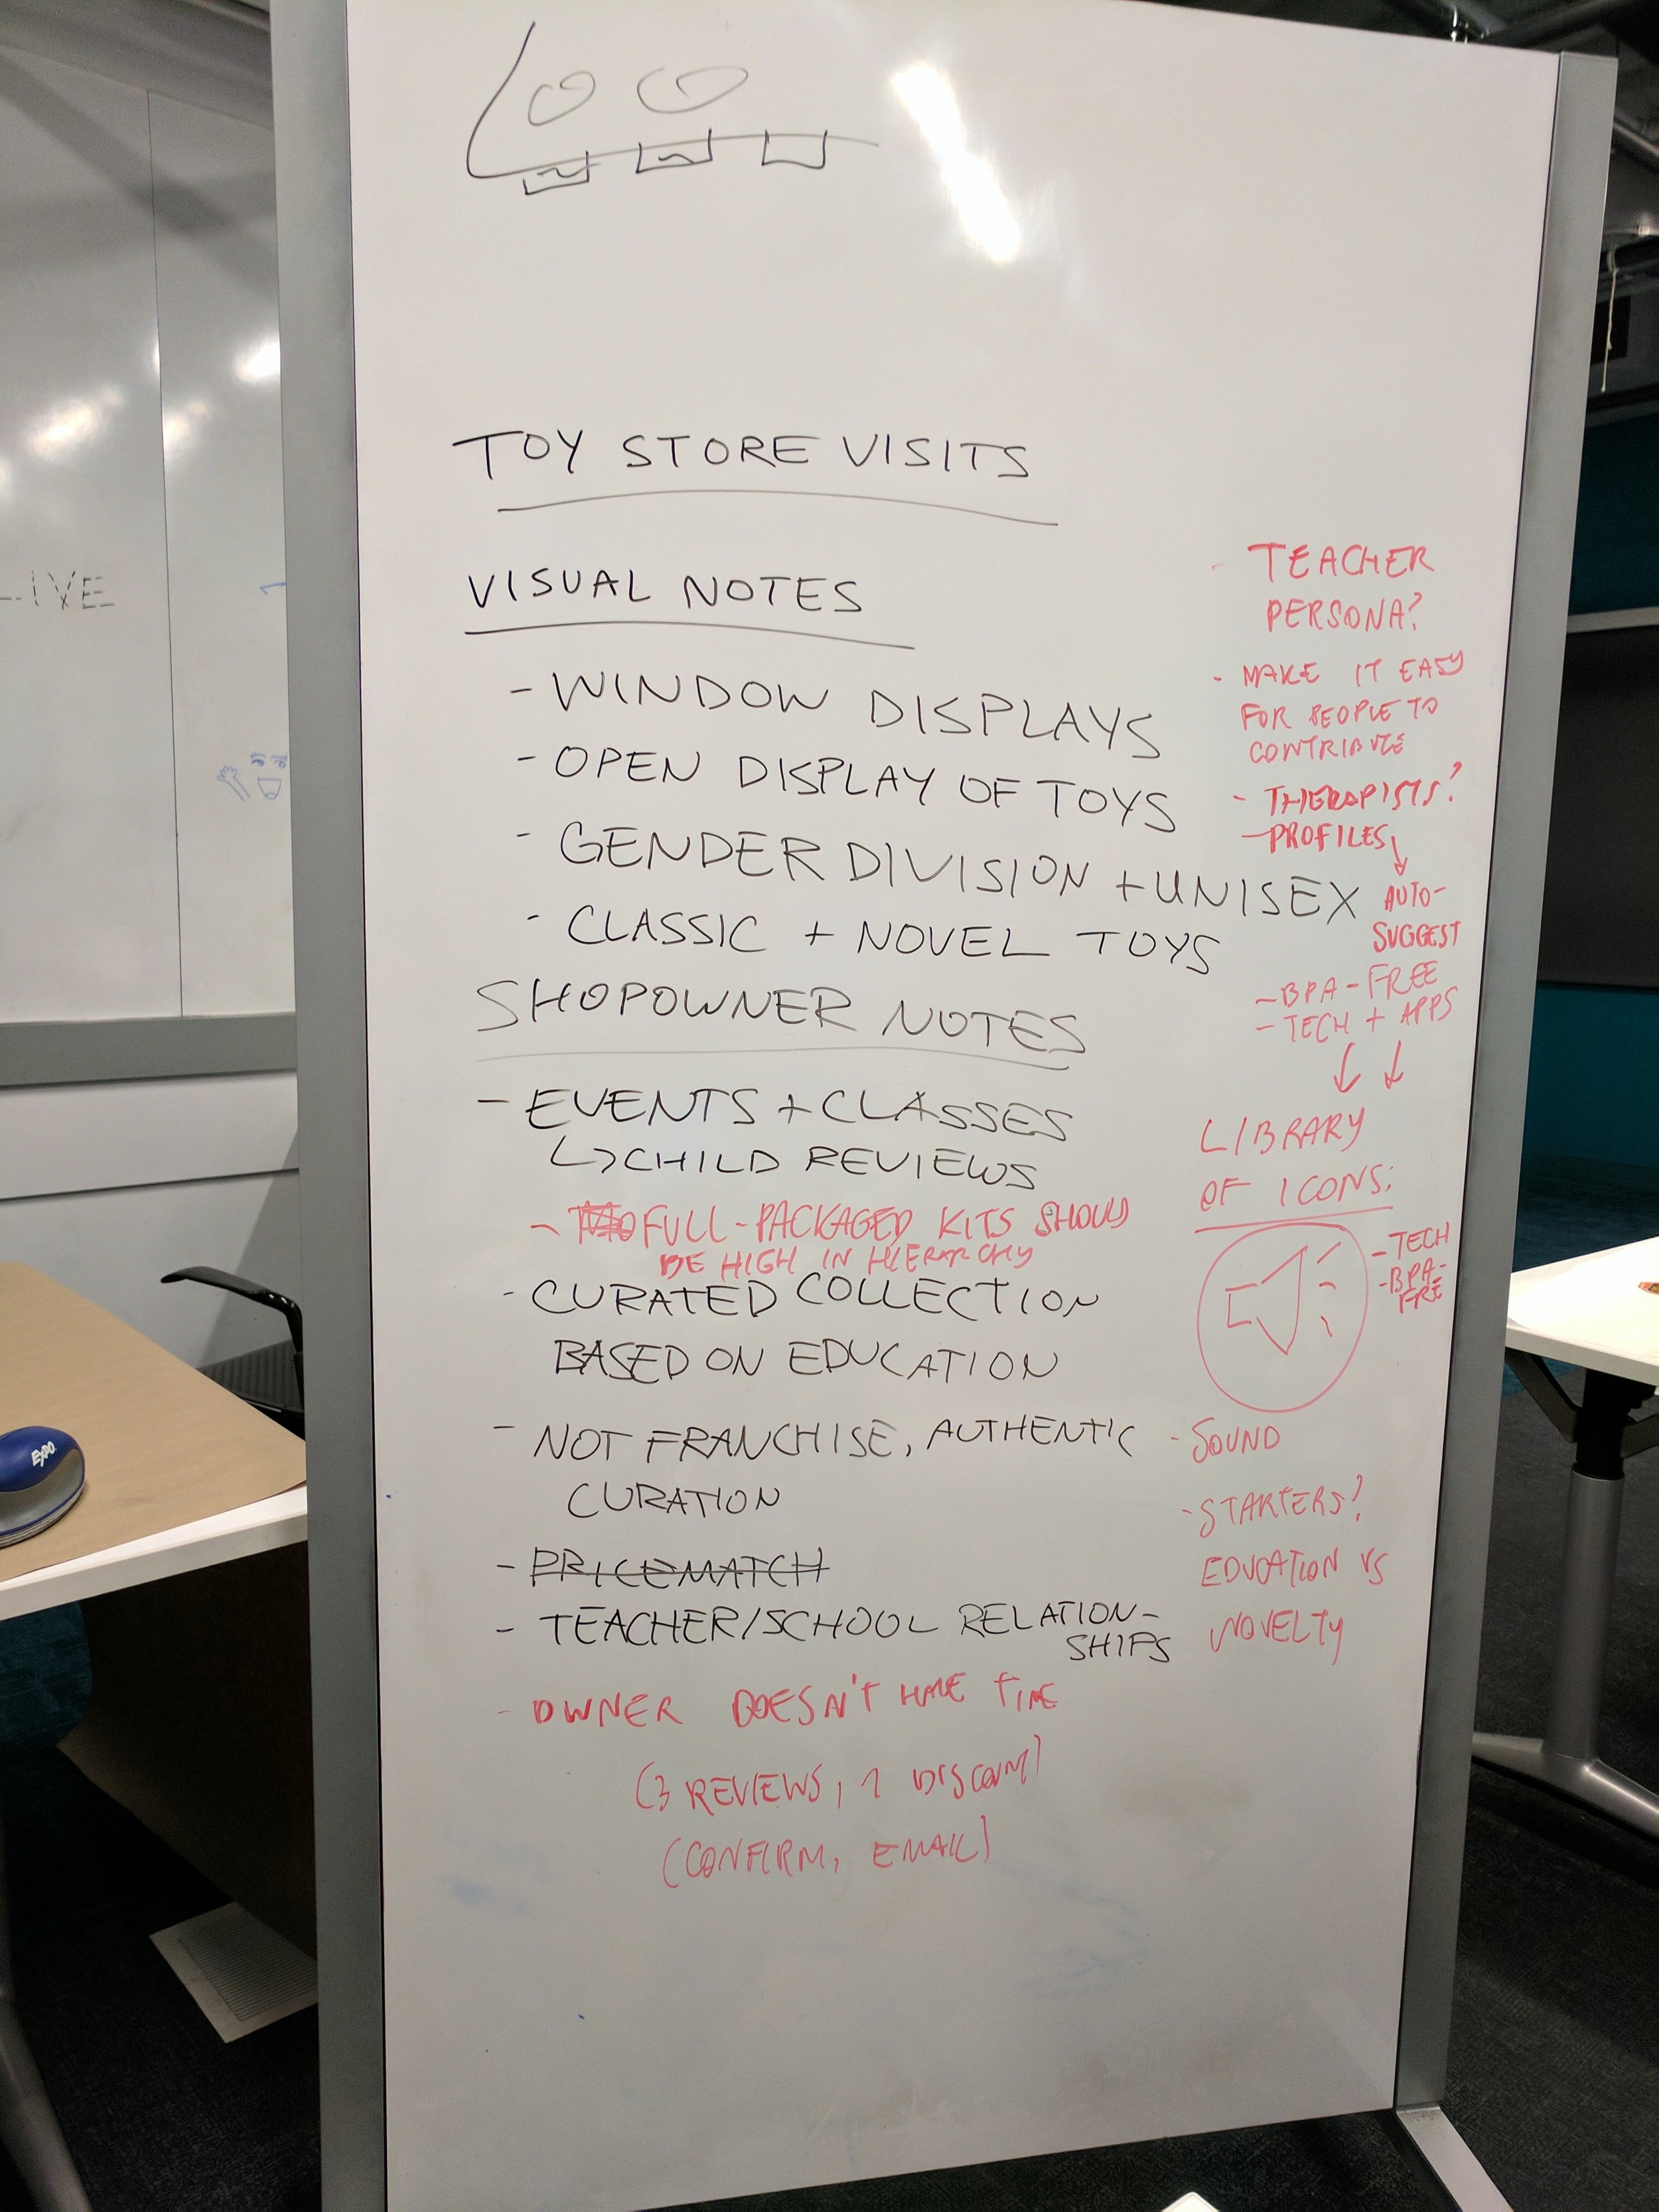 TOY STORE VISITS
VISUAL NOTES
- WINDOW DISPLAYS
- OPEN DISPLAY OF TOYS
- GENDER DIVISION + UNISEX
- CLASSIC + NOVEL TOYS
SHOPOWNER NOTES
- EVENTS + CLASSES
↳ CHILD REVIEWS
- FULL-PACKAGED KITS SHOULD
BE HIGH IN HIERARCHY
- CURATED COLLECTION
BASED ON EDUCATION
- NOT FRANCHISE, AUTHENTIC
CURATION
- PRICEMATCH
- TEACHER/SCHOOL RELATION-
SHIPS
- OWNER DOESN'T HAVE TIME
(3 REVIEWS, 1 DISCOUNT)
(CONFIRM, EMAIL)
- TEACHER
PERSONA?
- MAKE IT EASY
FOR PEOPLE TO
CONTRIBUTE
- THERAPISTS?
- PROFILES
AUTO-
SUGGEST
- BPA-FREE
- TECH + APPS
LIBRARY
OF ICONS:
- TECH
- BPA-
FRE
- SOUND
- STARTERS?
EDUCATION VS
NOVELTY
EXPO